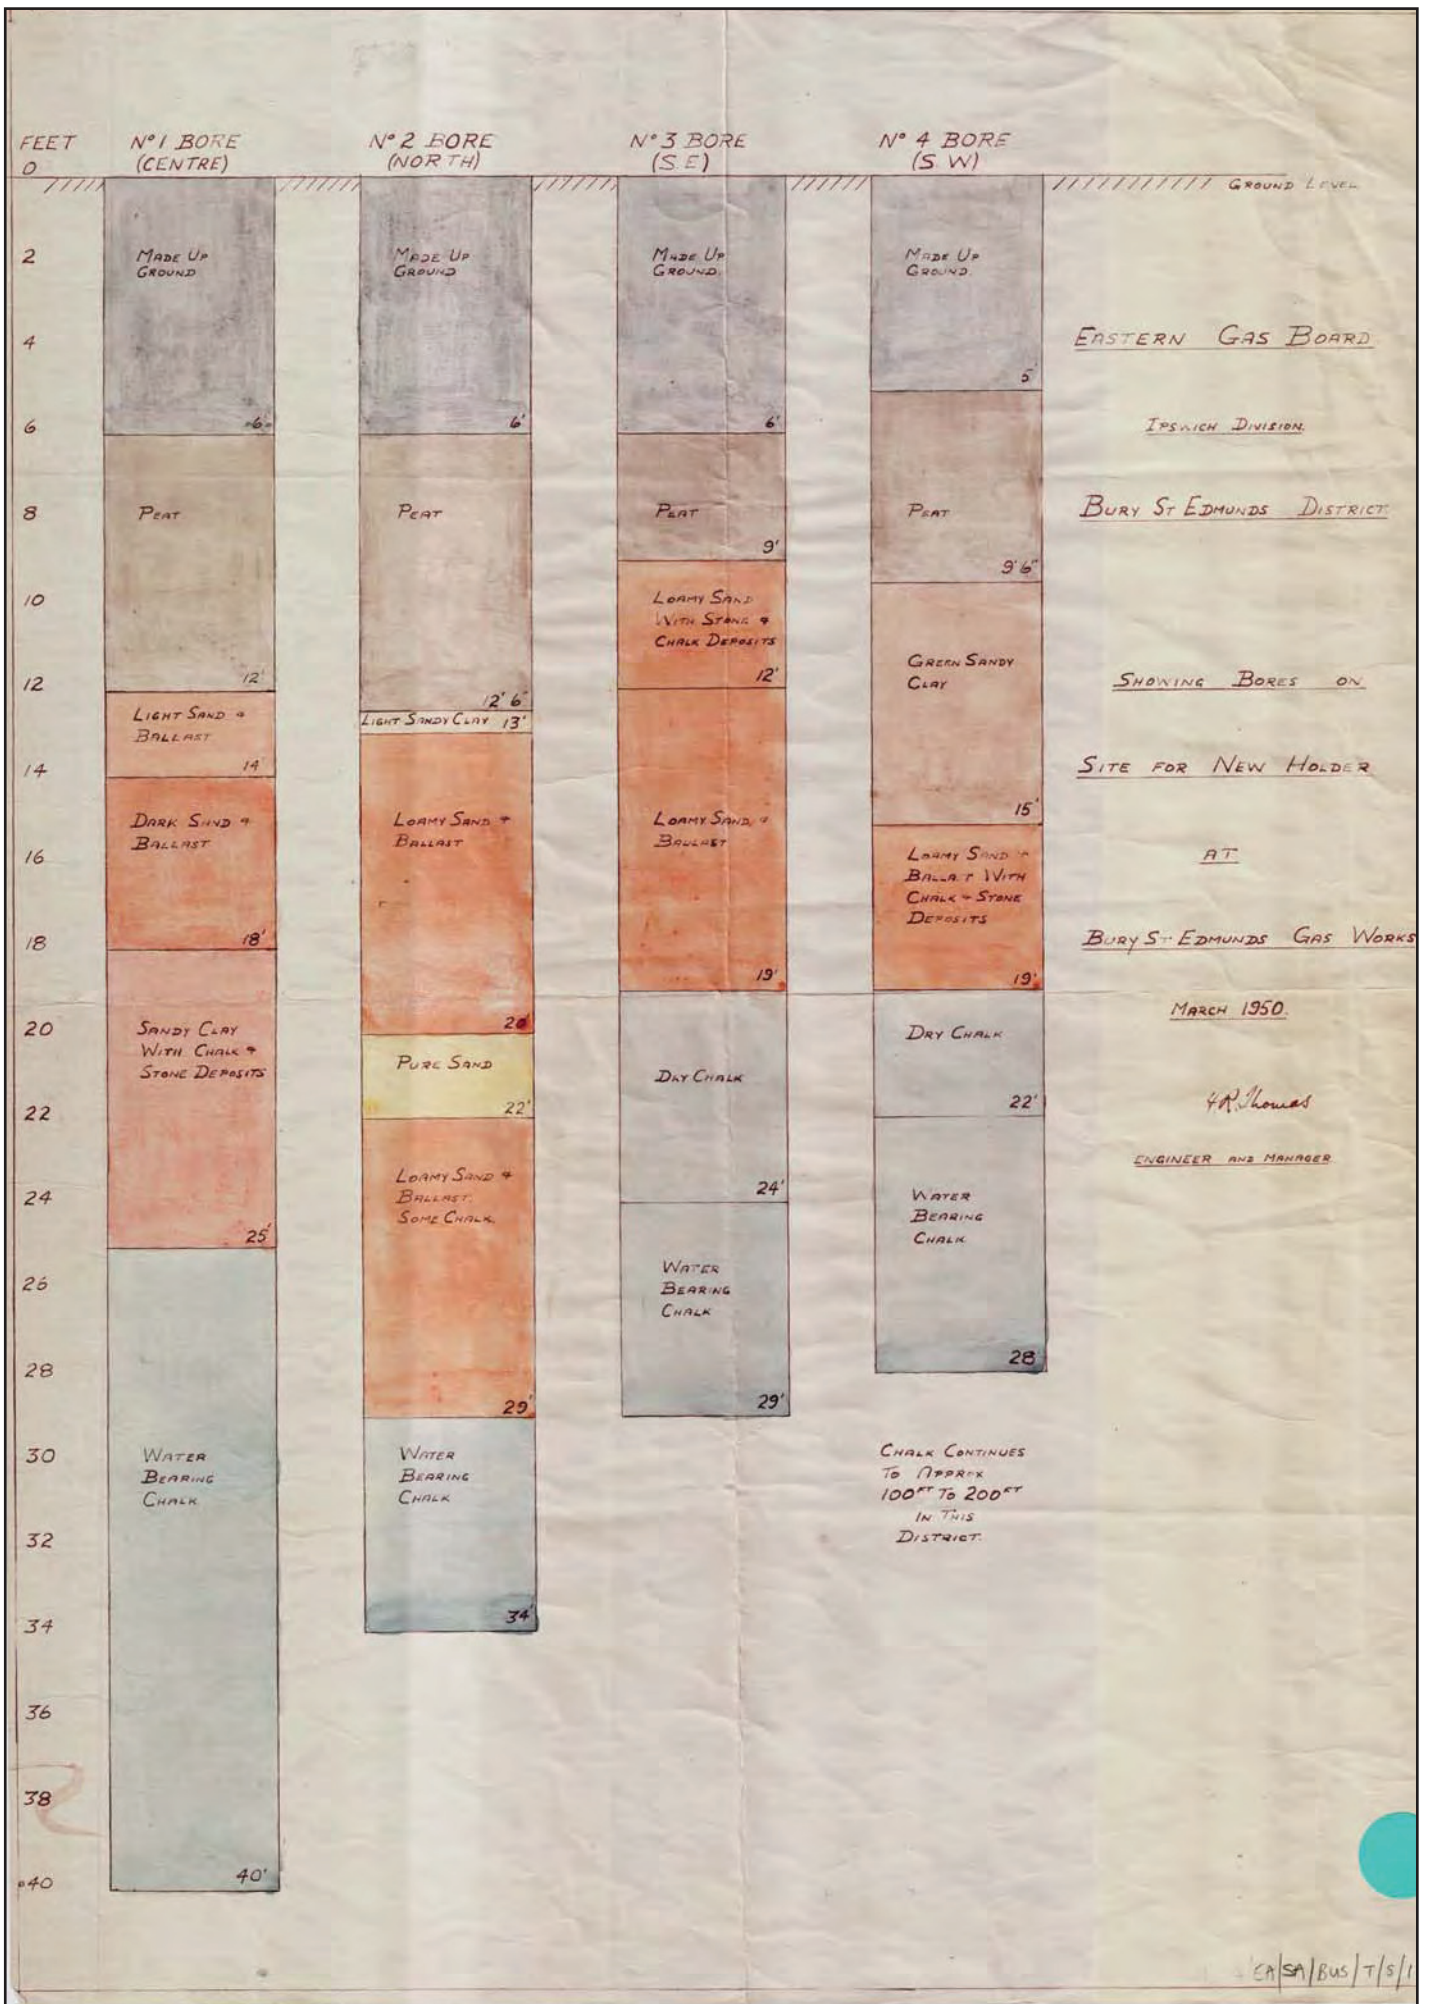 FEET
0
2
4
6
8
10
12
14
16
18
20
22
24
26
28
30
32
34
36
38
40
Nº 1 BORE
(CENTRE)
MADE UP
GROUND
6'
PEAT
12'
LIGHT SAND &
BALLAST
14'
DARK SAND &
BALLAST
18'
SANDY CLAY
WITH CHALK &
STONE DEPOSITS
25'
WATER
BEARING
CHALK
40'
Nº 2 BORE
(NORTH)
MADE UP
GROUND
6'
PEAT
12' 6"
LIGHT SANDY CLAY 13'
LOAMY SAND &
BALLAST
20'
PURE SAND
22'
LOAMY SAND &
BALLAST.
SOME CHALK.
29'
WATER
BEARING
CHALK
34'
Nº 3 BORE
(S.E)
MADE UP
GROUND.
6'
PEAT
9'
LOAMY SAND
WITH STONE &
CHALK DEPOSITS
12'
LOAMY SAND &
BALLAST
19'
DRY CHALK
24'
WATER
BEARING
CHALK
29'
Nº 4 BORE
(S W)
MADE UP
GROUND.
5'
PEAT
9' 6"
GREEN SANDY
CLAY
15'
LOAMY SAND &
BALLAST WITH
CHALK & STONE
DEPOSITS
19'
DRY CHALK
22'
WATER
BEARING
CHALK
28'
CHALK CONTINUES
TO APPROX
100FT TO 200FT
IN THIS
DISTRICT.
GROUND LEVEL
EASTERN GAS BOARD
IPSWICH DIVISION.
BURY ST EDMUNDS DISTRICT
SHOWING BORES ON
SITE FOR NEW HOLDER
AT
BURY ST EDMUNDS GAS WORKS
MARCH 1950.
H R. Thomas
ENGINEER AND MANAGER
EA/SA/BUS/T/S/1